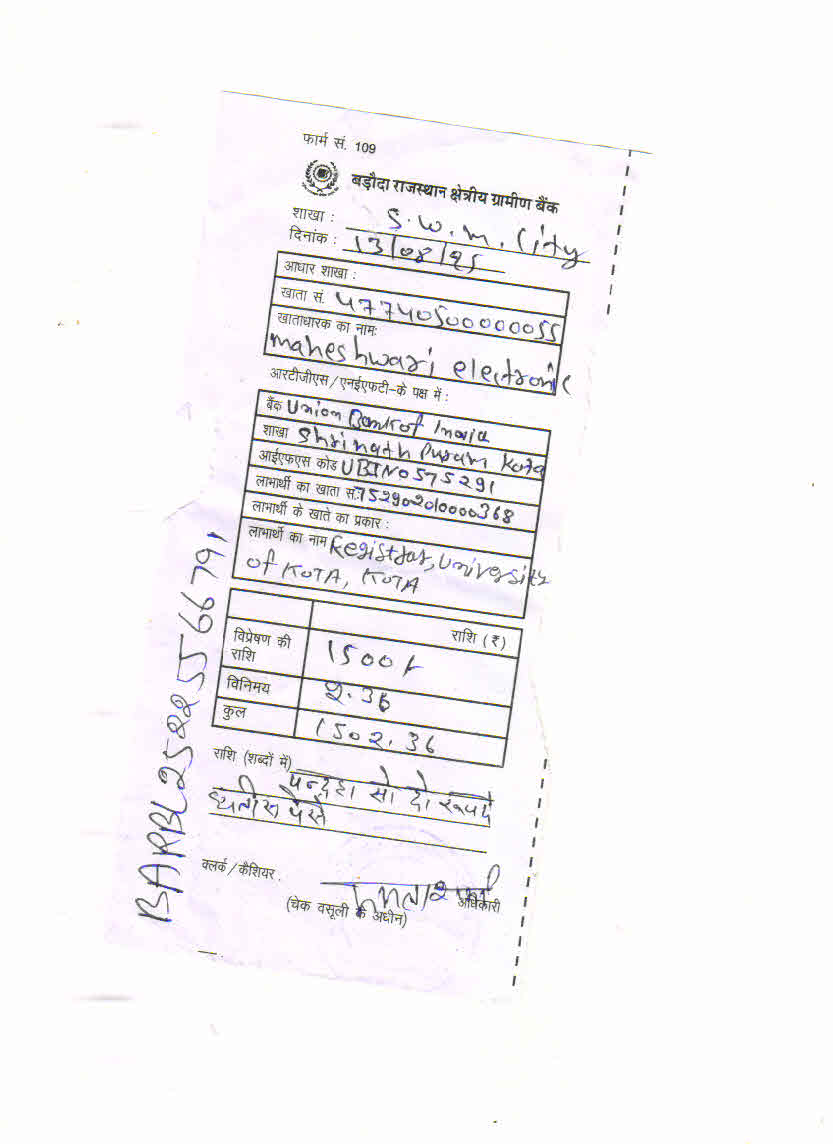 फार्म सं. 109
बड़ौदा राजस्थान क्षेत्रीय ग्रामीण बैंक
शाखा : S.W.M. City
दिनांक : 13/08/25
आधार शाखा :
खाता सं. 47740500000055
खाताधारक का नामः
maheshwari electronic
आरटीजीएस/एनईएफटी-के पक्ष में :
बैंक Union Bank of India
शाखा Shrinath Puram Kota
आईएफएस कोड UBIN0575291
लाभार्थी का खाता सं. 752902010000368
लाभार्थी के खाते का प्रकार :
लाभार्थी का नाम Registrar, University
of KOTA, KOTA
राशि (₹)
विप्रेषण की राशि 1500/-
विनिमय 2.36
कुल 1502.36
राशि (शब्दों में) पन्द्रह सो दो रूपये
छत्तीस पैसे
क्लर्क/कैशियर
अधिकारी
(चेक वसूली के अधीन)
BARBL25225566791